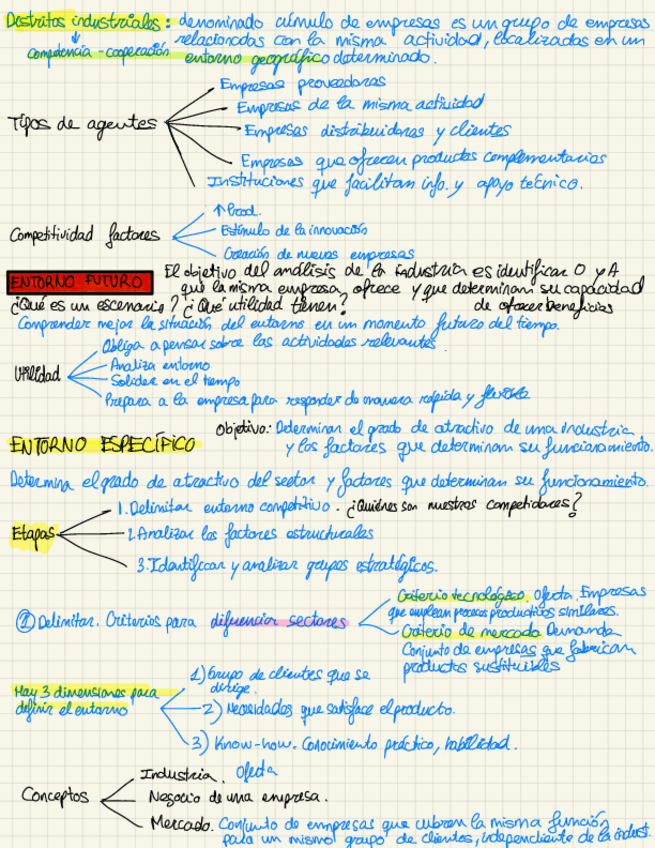 Distritos industriales: denominado cúmulo de empresas es un grupo de empresas
relacionadas con la misma actividad, localizadas en un
competencia - cooperación entorno geográfico determinado.
Empresas proveedoras
Empresas de la misma actividad
Tipos de agentes Empresas distribuidoras y clientes
Empresas que ofrecen productos complementarios
Instituciones que facilitan info. y apoyo técnico.
↑ Prod.
Competitividad factores Estímulo de la innovación
Creación de nuevas empresas
ENTORNO FUTURO El objetivo del análisis de la industria es identificar O y A
que la misma empresa, ofrece y que determinan su capacidad
¿Qué es un escenario? ¿Qué utilidad tienen? de ofrecer beneficios
Comprender mejor la situación del entorno en un momento futuro del tiempo.
Obliga a pensar sobre las actividades relevantes.
Utilidad Analiza entorno
Solidez en el tiempo
Prepara a la empresa para responder de manera rápida y flexible
Objetivo: Determinar el grado de atractivo de una industria
ENTORNO ESPECÍFICO y los factores que determinan su funcionamiento.
Determina el grado de atractivo del sector y factores que determinan su funcionamiento.
1. Delimitar entorno competitivo. ¿Quiénes son nuestros competidores?
Etapas 2. Analizar los factores estructurales
3. Identificar y analizar grupos estratégicos.
Criterio tecnológico. Oferta. Empresas
que emplean procesos productivos similares.
① Delimitar. Criterios para diferenciar sectores Criterio de mercado Demanda
Conjunto de empresas que fabrican
productos sustituibles
1) Grupo de clientes que se
dirige.
Hay 3 dimensiones para
definir el entorno 2) Necesidades que satisface el producto.
3) Know-how. Conocimiento práctico, habilidad.
Industria. Oferta
Conceptos Negocio de una empresa.
Mercado. Conjunto de empresas que cubren la misma función
para un mismo grupo de clientes, independiente de la indust.